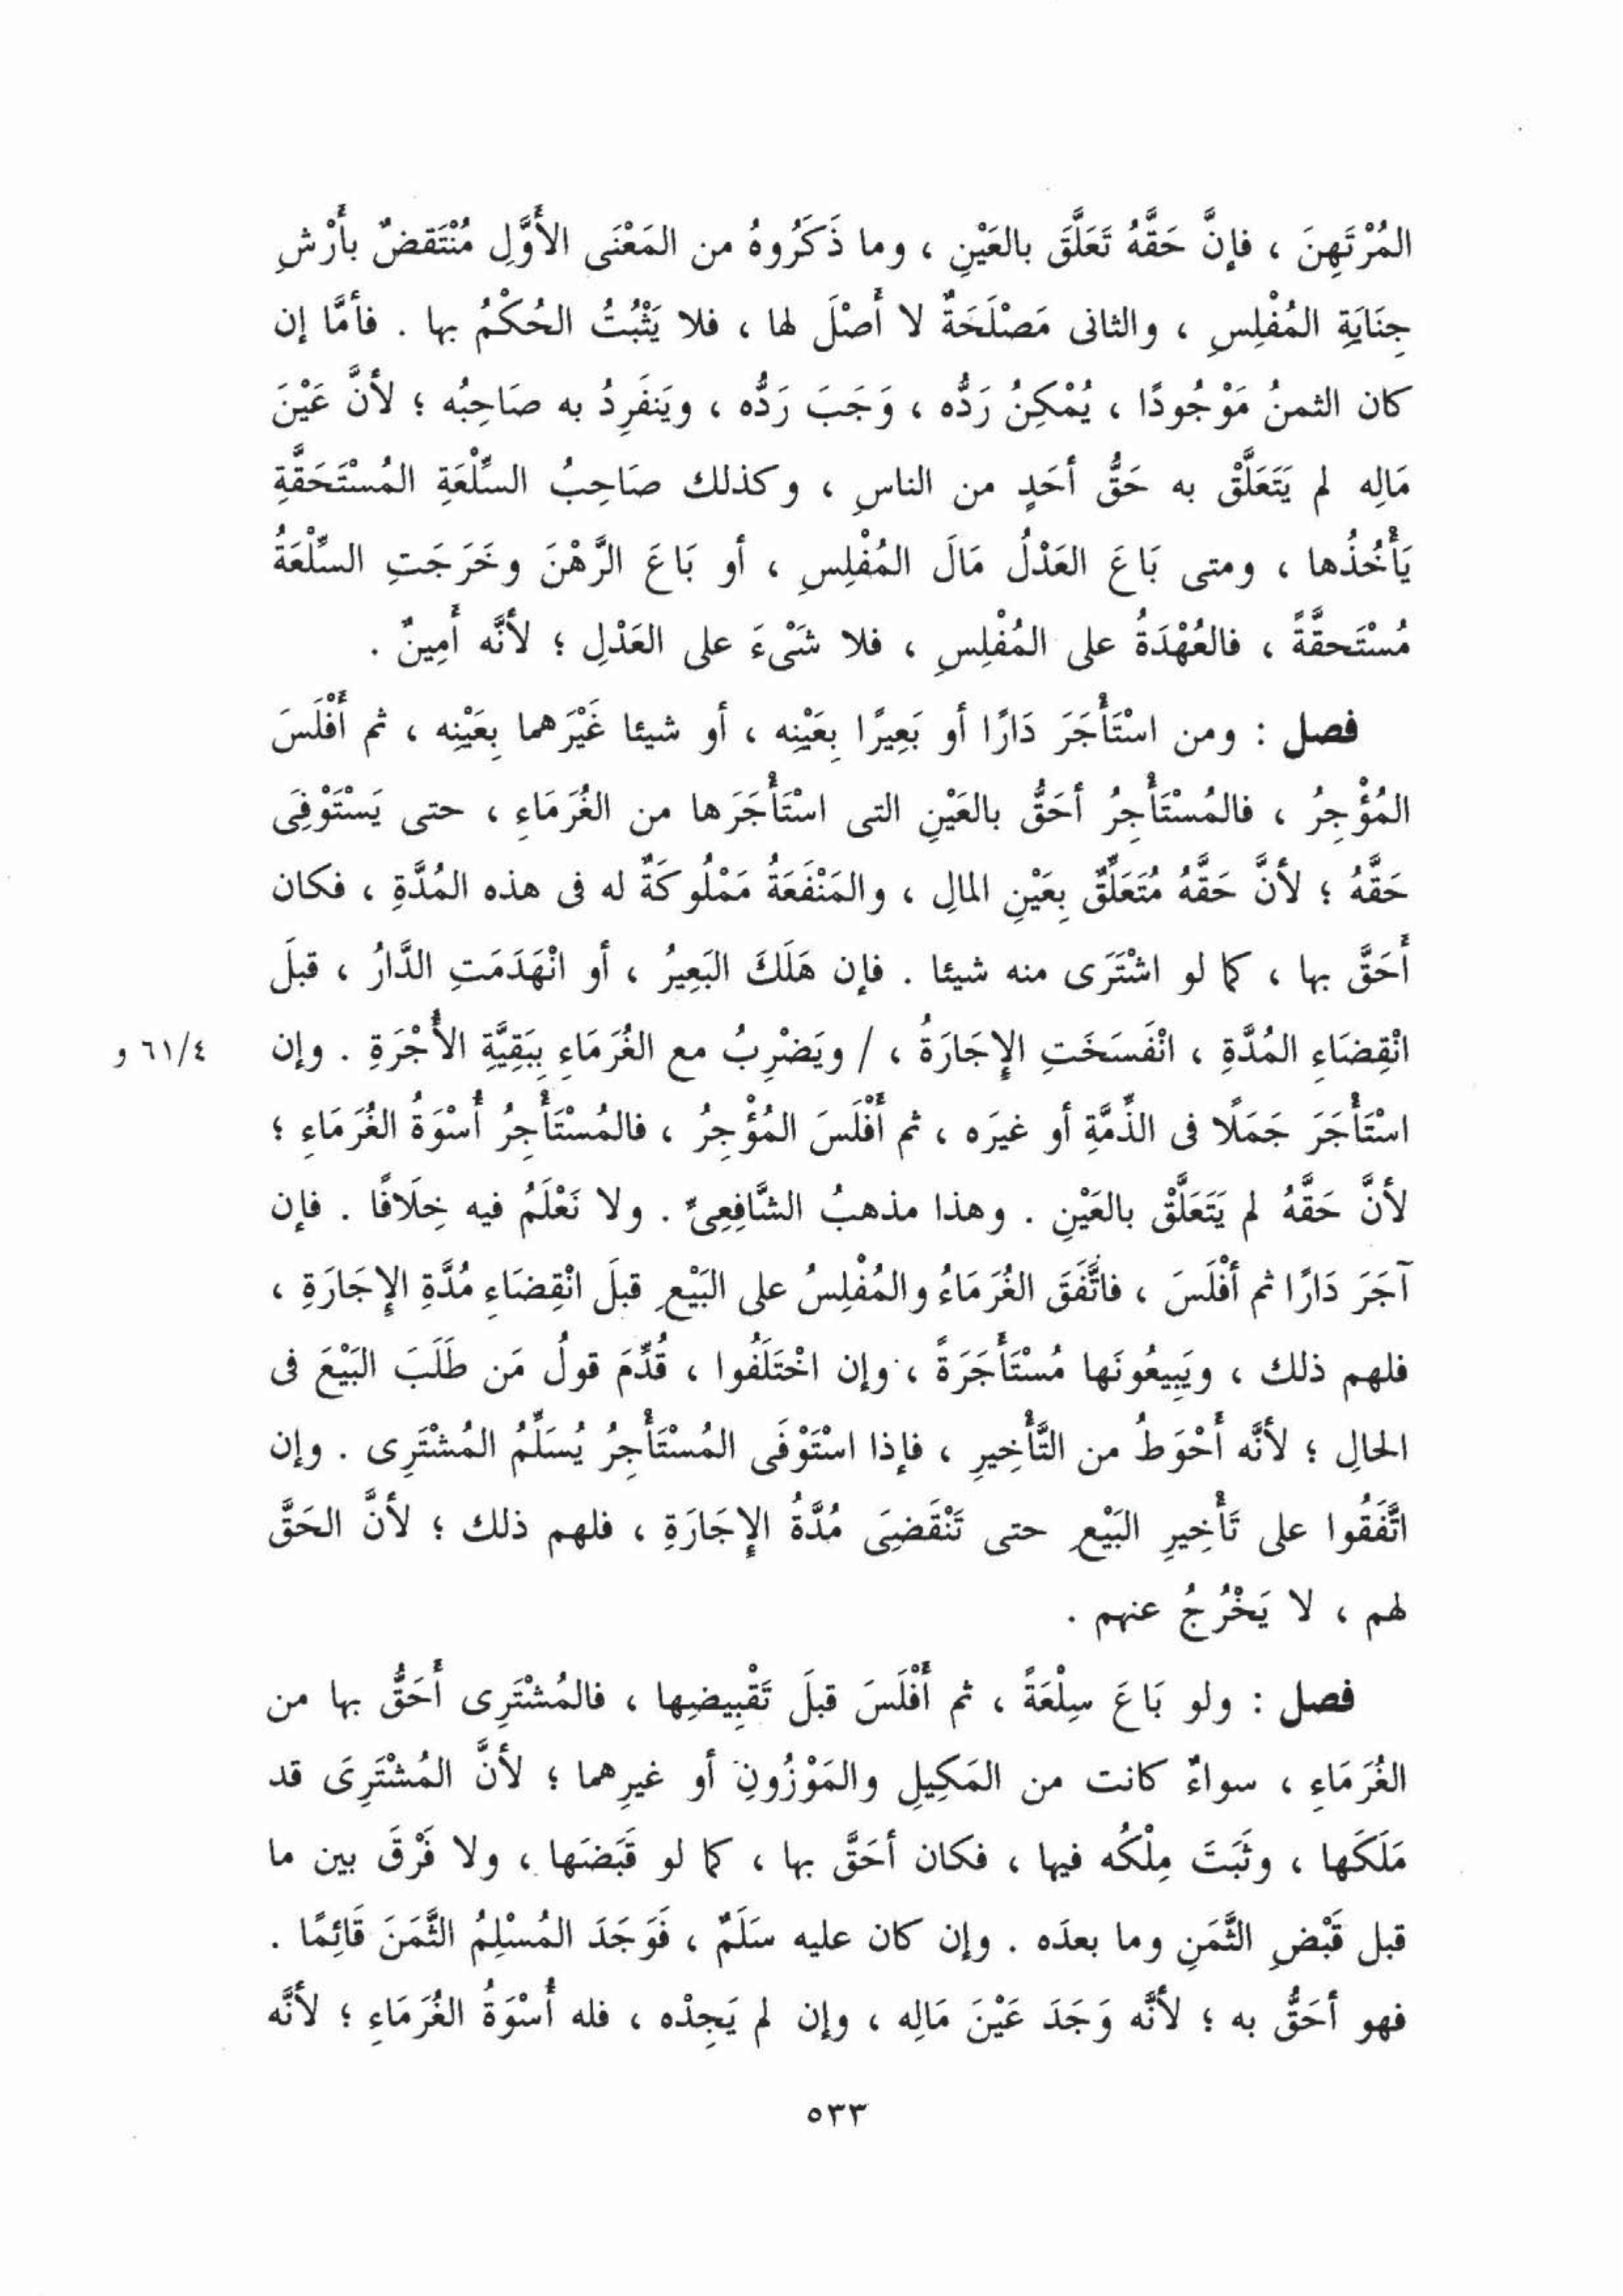 المُرْتَهِنَ ، فإنَّ حَقَّهُ تَعَلَّقَ بالعَيْنِ ، وما ذَكَرُوهُ من المَعْنَى الأَوَّلِ مُنْتَقضٌ بأَرْشِ
جِنَايَةِ المُفْلِسِ ، والثانى مَصْلَحَةٌ لا أَصْلَ لها ، فلا يَثْبُتُ الحُكْمُ بها . فأمَّا إن
كان الثمنُ مَوْجُودًا ، يُمْكِنُ رَدُّه ، وَجَبَ رَدُّه ، ويَنفَرِدُ به صَاحِبُه ؛ لأنَّ عَيْنَ
مَالِه لم يَتَعَلَّقْ به حَقُّ أحَدٍ من الناسِ ، وكذلك صَاحِبُ السِّلْعَةِ المُسْتَحَقَّةِ
يَأْخُذُها ، ومتى بَاعَ العَدْلُ مَالَ المُفْلِسِ ، أو بَاعَ الرَّهْنَ وخَرَجَتِ السِّلْعَةُ
مُسْتَحقَّةً ، فالعُهْدَةُ على المُفْلِسِ ، فلا شَىْءَ على العَدْلِ ؛ لأنَّه أَمِينٌ .
فصل : ومن اسْتَأْجَرَ دَارًا أو بَعِيرًا بِعَيْنِه ، أو شيئا غَيْرَهما بِعَيْنِه ، ثم أَفْلَسَ
المُؤْجِرُ ، فالمُسْتَأْجِرُ أحَقُّ بالعَيْنِ التى اسْتَأْجَرَها من الغُرَمَاءِ ، حتى يَسْتَوْفِىَ
حَقَّهُ ؛ لأنَّ حَقَّهُ مُتَعَلِّقٌ بِعَيْنِ المالِ ، والمَنْفَعَةُ مَمْلُوكَةٌ له فى هذه المُدَّةِ ، فكان
أَحَقَّ بها ، كما لو اشْتَرَى منه شيئا . فإن هَلَكَ البَعِيرُ ، أو انْهَدَمَتِ الدَّارُ ، قبلَ
انْقِضَاءِ المُدَّةِ ، انْفَسَخَتِ الإِجَارَةُ ، / ويَضْرِبُ مع الغُرَمَاءِ بِبَقِيَّةِ الأُجْرَةِ . وإن ٦١/٤ و
اسْتَأْجَرَ جَمَلًا فى الذِّمَّةِ أو غيرَه ، ثم أَفْلَسَ المُؤْجِرُ ، فالمُسْتَأْجِرُ أُسْوَةُ الغُرَمَاءِ ؛
لأنَّ حَقَّهُ لم يَتَعَلَّقْ بالعَيْنِ . وهذا مذهبُ الشَّافِعِىِّ . ولا نَعْلَمُ فيه خِلَافًا . فإن
آجَرَ دَارًا ثم أفْلَسَ ، فاتَّفَقَ الغُرَمَاءُ والمُفْلِسُ على البَيْعِ قبلَ انْقِضَاءِ مُدَّةِ الإِجَارَةِ ،
فلهم ذلك ، ويَبِيعُونَها مُسْتَأْجَرَةً ، وإن اخْتَلَفُوا ، قُدِّمَ قولُ مَن طَلَبَ البَيْعَ فى
الحالِ ؛ لأنَّه أَحْوَطُ من التَّأْخِيرِ ، فإذا اسْتَوْفَى المُسْتَأْجِرُ يُسَلِّمُ المُشْتَرِى . وإن
اتَّفَقُوا على تَأْخِيرِ البَيْعِ حتى تَنْقَضِىَ مُدَّةُ الإِجَارَةِ ، فلهم ذلك ؛ لأنَّ الحَقَّ
لهم ، لا يَخْرُجُ عنهم .
فصل : ولو بَاعَ سِلْعَةً ، ثم أَفْلَسَ قبلَ تَقْبِيضِها ، فالمُشْتَرِى أَحَقُّ بها من
الغُرَمَاءِ ، سواءٌ كانت من المَكِيلِ والمَوْزُونِ أو غيرِهما ؛ لأنَّ المُشْتَرِىَ قد
مَلَكَها ، وثَبَتَ مِلْكُه فيها ، فكان أحَقَّ بها ، كما لو قَبَضَها ، ولا فَرْقَ بين ما
قبل قَبْضِ الثَّمَنِ وما بعدَه . وإن كان عليه سَلَمٌ ، فَوَجَدَ المُسْلِمُ الثَّمَنَ قَائِمًا .
فهو أحَقُّ به ؛ لأنَّه وَجَدَ عَيْنَ مَالِه ، وإن لم يَجِدْه ، فله أُسْوَةُ الغُرَمَاءِ ؛ لأنَّه
٥٣٣